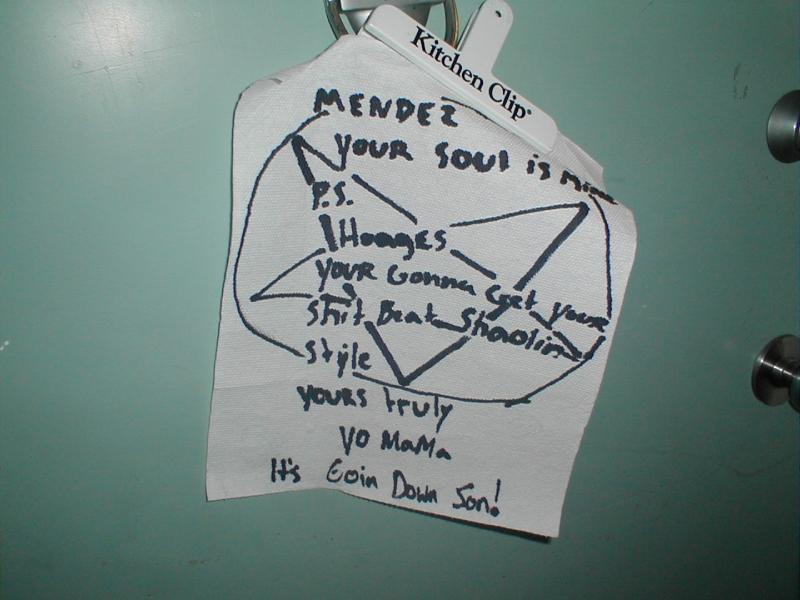 Kitchen Clip
MENDEZ
YOUR SOUL is Mine
P.S.
Hoages
YOUR Gonna Get your
Shit Beat Shaolin
Style
YOURS truly
YO MaMa
It's Goin Down Son!